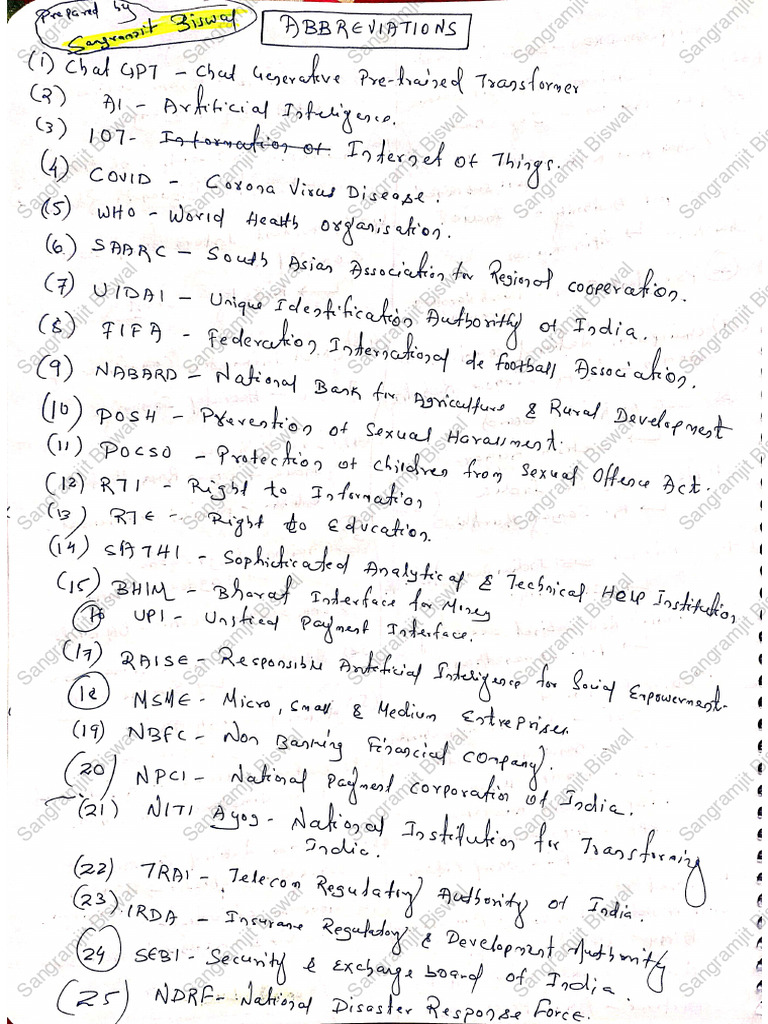 Prepared by
Sangramjit Biswal
ABBREVIATIONS
(1) Chat GPT - Chat Generative Pre-trained Transformer
(2) AI - Artificial Inteligence.
(3) IOT - Information of Internet of Things.
(4) COVID - Corona Virus Disease.
(5) WHO - World Health organisation.
(6) SAARC - South Asian Association for Regional cooperation.
(7) UIDAI - Unique Identification Authority of India.
(8) FIFA - Federation International de football Association.
(9) NABARD - National Bank for Agriculture & Rural Development
(10) POSH - Prevention of Sexual Harassment.
(11) POCSO - Protection of children from Sexual Offence Act.
(12) RTI - Right to Information
(13) RTE - Right to Education.
(14) SATHI - Sophicticated Analytical & Technical Help Institution
(15) BHIM - Bharat Interface for Money
16 UPI - Unified Payment Interface.
(17) RAISE - Responsible Artificial Inteligence for Social Empowerment.
18 MSME - Micro, Small & Medium Entreprises.
(19) NBFC - Non Banking Financial company.
(20) NPCI - National Payment corporation of India.
(21) NITI Ayog - National Institution for Transforming
India.
(22) TRAI - Telecom Regulatory Authority of India.
(23) IRDA - Insurance Regulatory & Development Authority
24 SEBI - Security & Exchange board of India.
(25) NDRF - National Disaster Response Force.